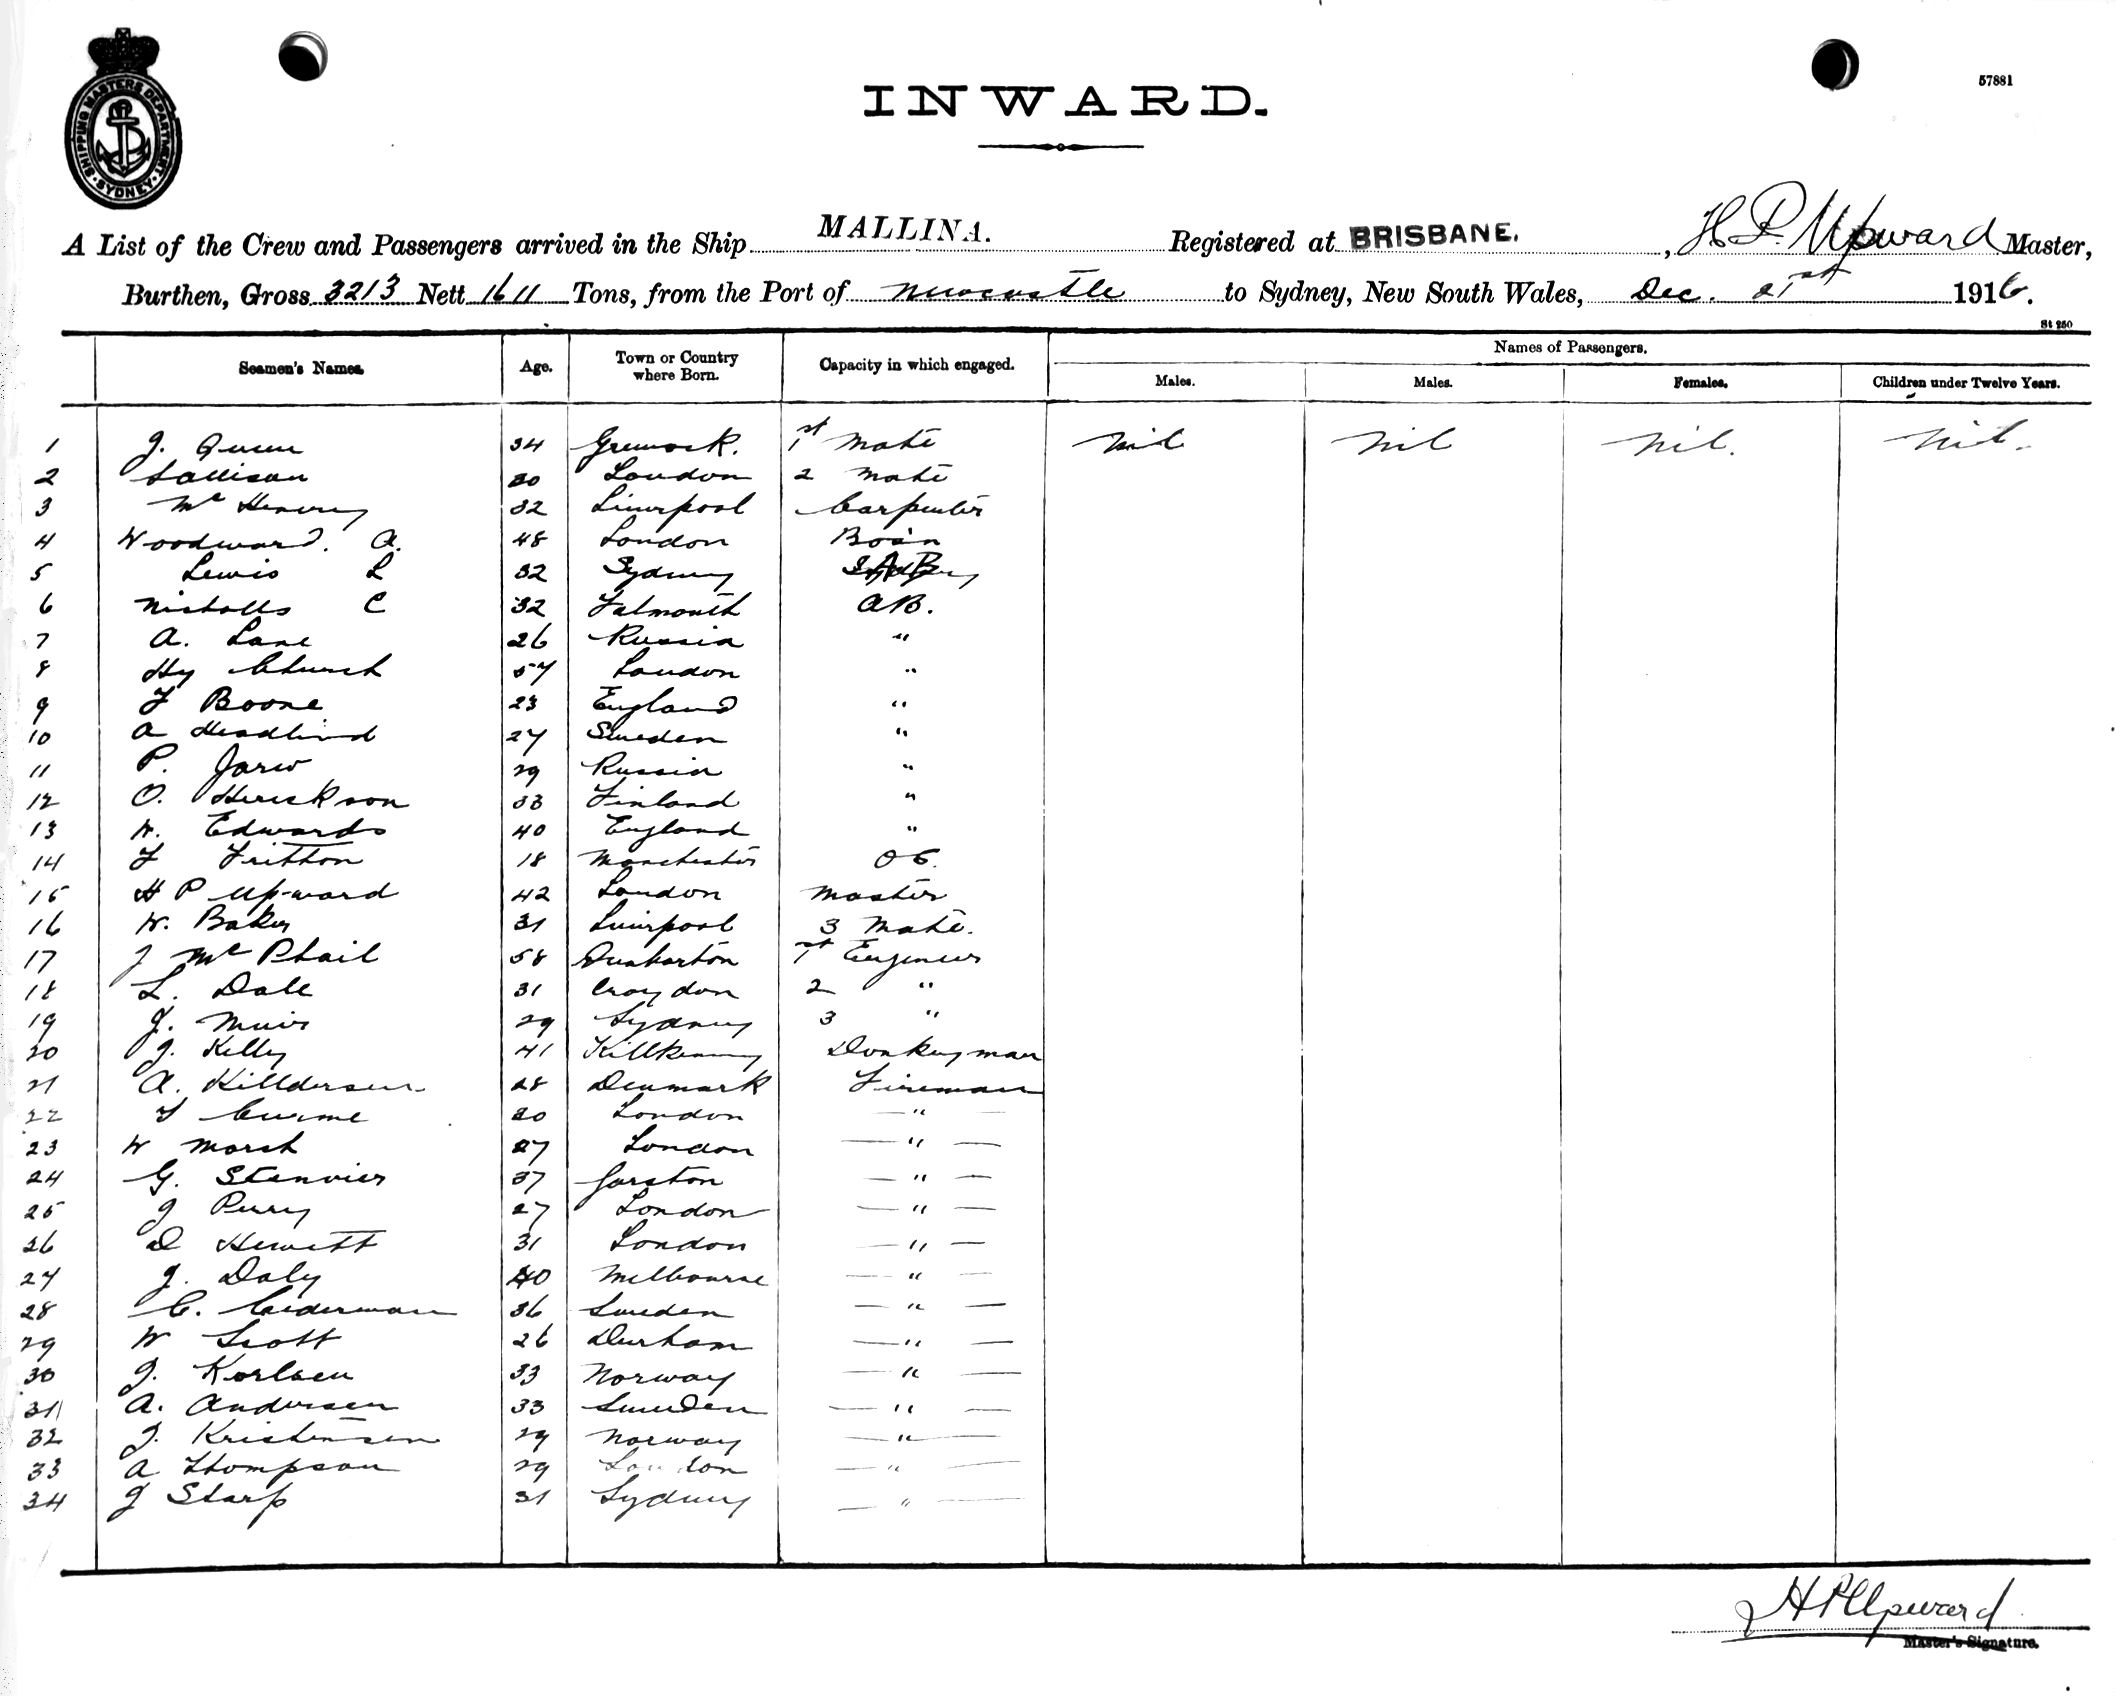 57881
SHIPPING MASTERS DEPARTMENT SYDNEY
INWARD.
A List of the Crew and Passengers arrived in the Ship MALLINA. Registered at BRISBANE. , H P. Upward Master,
Burthen, Gross 3213 Nett 1611 Tons, from the Port of Newcastle to Sydney, New South Wales, Dec. 21st 1916.
St 250
Seamen's Names. Age. Town or Country where Born. Capacity in which engaged. Names of Passengers.
Males. Males. Females. Children under Twelve Years.
1 J. 34 Greenock. 1st Mate Nil Nil Nil. Nil.
2 London 2 Mate
3 Mc Henery 32 Liverpool Carpenter
4 Woodward. A. 48 London Bosn
5 Lewis L 32 Sydney AB
6 Nicholls C 32 Falmouth AB.
7 A. Lane 26 Russia "
8 Hy Church 57 London "
9 F Boone 23 England "
10 A Headlind 27 Sweden "
11 P. Jarw 29 Russia "
12 O. Henrickson 33 Finland "
13 W. Edwards 40 England "
14 F Fritton 18 Manchester OS.
15 H P Upward 42 London Master
16 W. Baker 31 Liverpool 3 Mate.
17 J McPhail 58 Dunbarton 1st Engineer
18 L. Dale 31 Croydon 2 "
19 J. Muir 29 Sydney 3 "
20 J. Kelly 41 Killkenny Donkeyman
21 A. Killdersen 28 Denmark Fireman
22 F 20 London "
23 W Marsh 27 London "
24 G. Stanvier 37 Garston "
25 J Perry 27 London "
26 D Hewitt 31 London "
27 J. Daly 40 Melbourne "
28 C. Cederman 36 Sweden "
29 W Scott 26 Durham "
30 J. Korlsen 33 Norway "
31 A. Andersen 33 Sweden "
32 J. Kristensen 29 Norway "
33 A Thompson 29 London "
34 J Starp 31 Sydney "
H P Upward
Master's Signature.